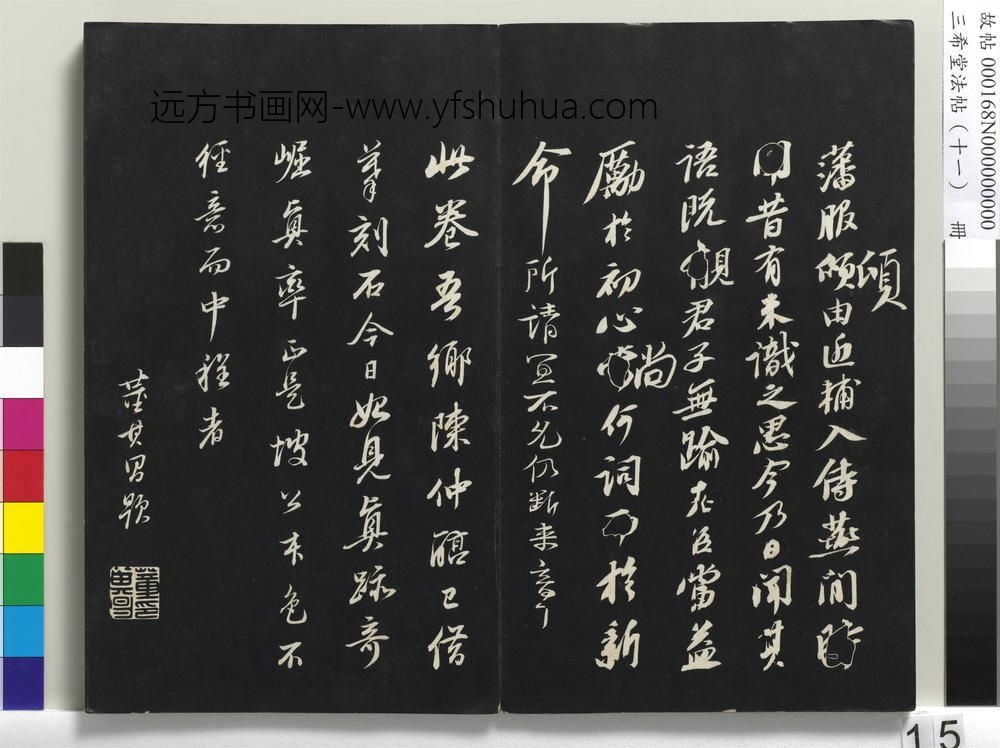 故帖 000168N000000000
三希堂法帖（十一） 冊
远方书画网-www.yfshuhua.com
藩服頃由近輔入侍燕間時
頃
聞昔有未識之思今乃日聞其
語既覿君子無踰老臣當益
勵於初心尚何詞於新
命所請宜不允仍斷來章
此卷吾鄉陳仲醇已借
摹刻石今日始見真跡奇
崛真率正是坡公本色不
經意而中程者
董其昌題
15